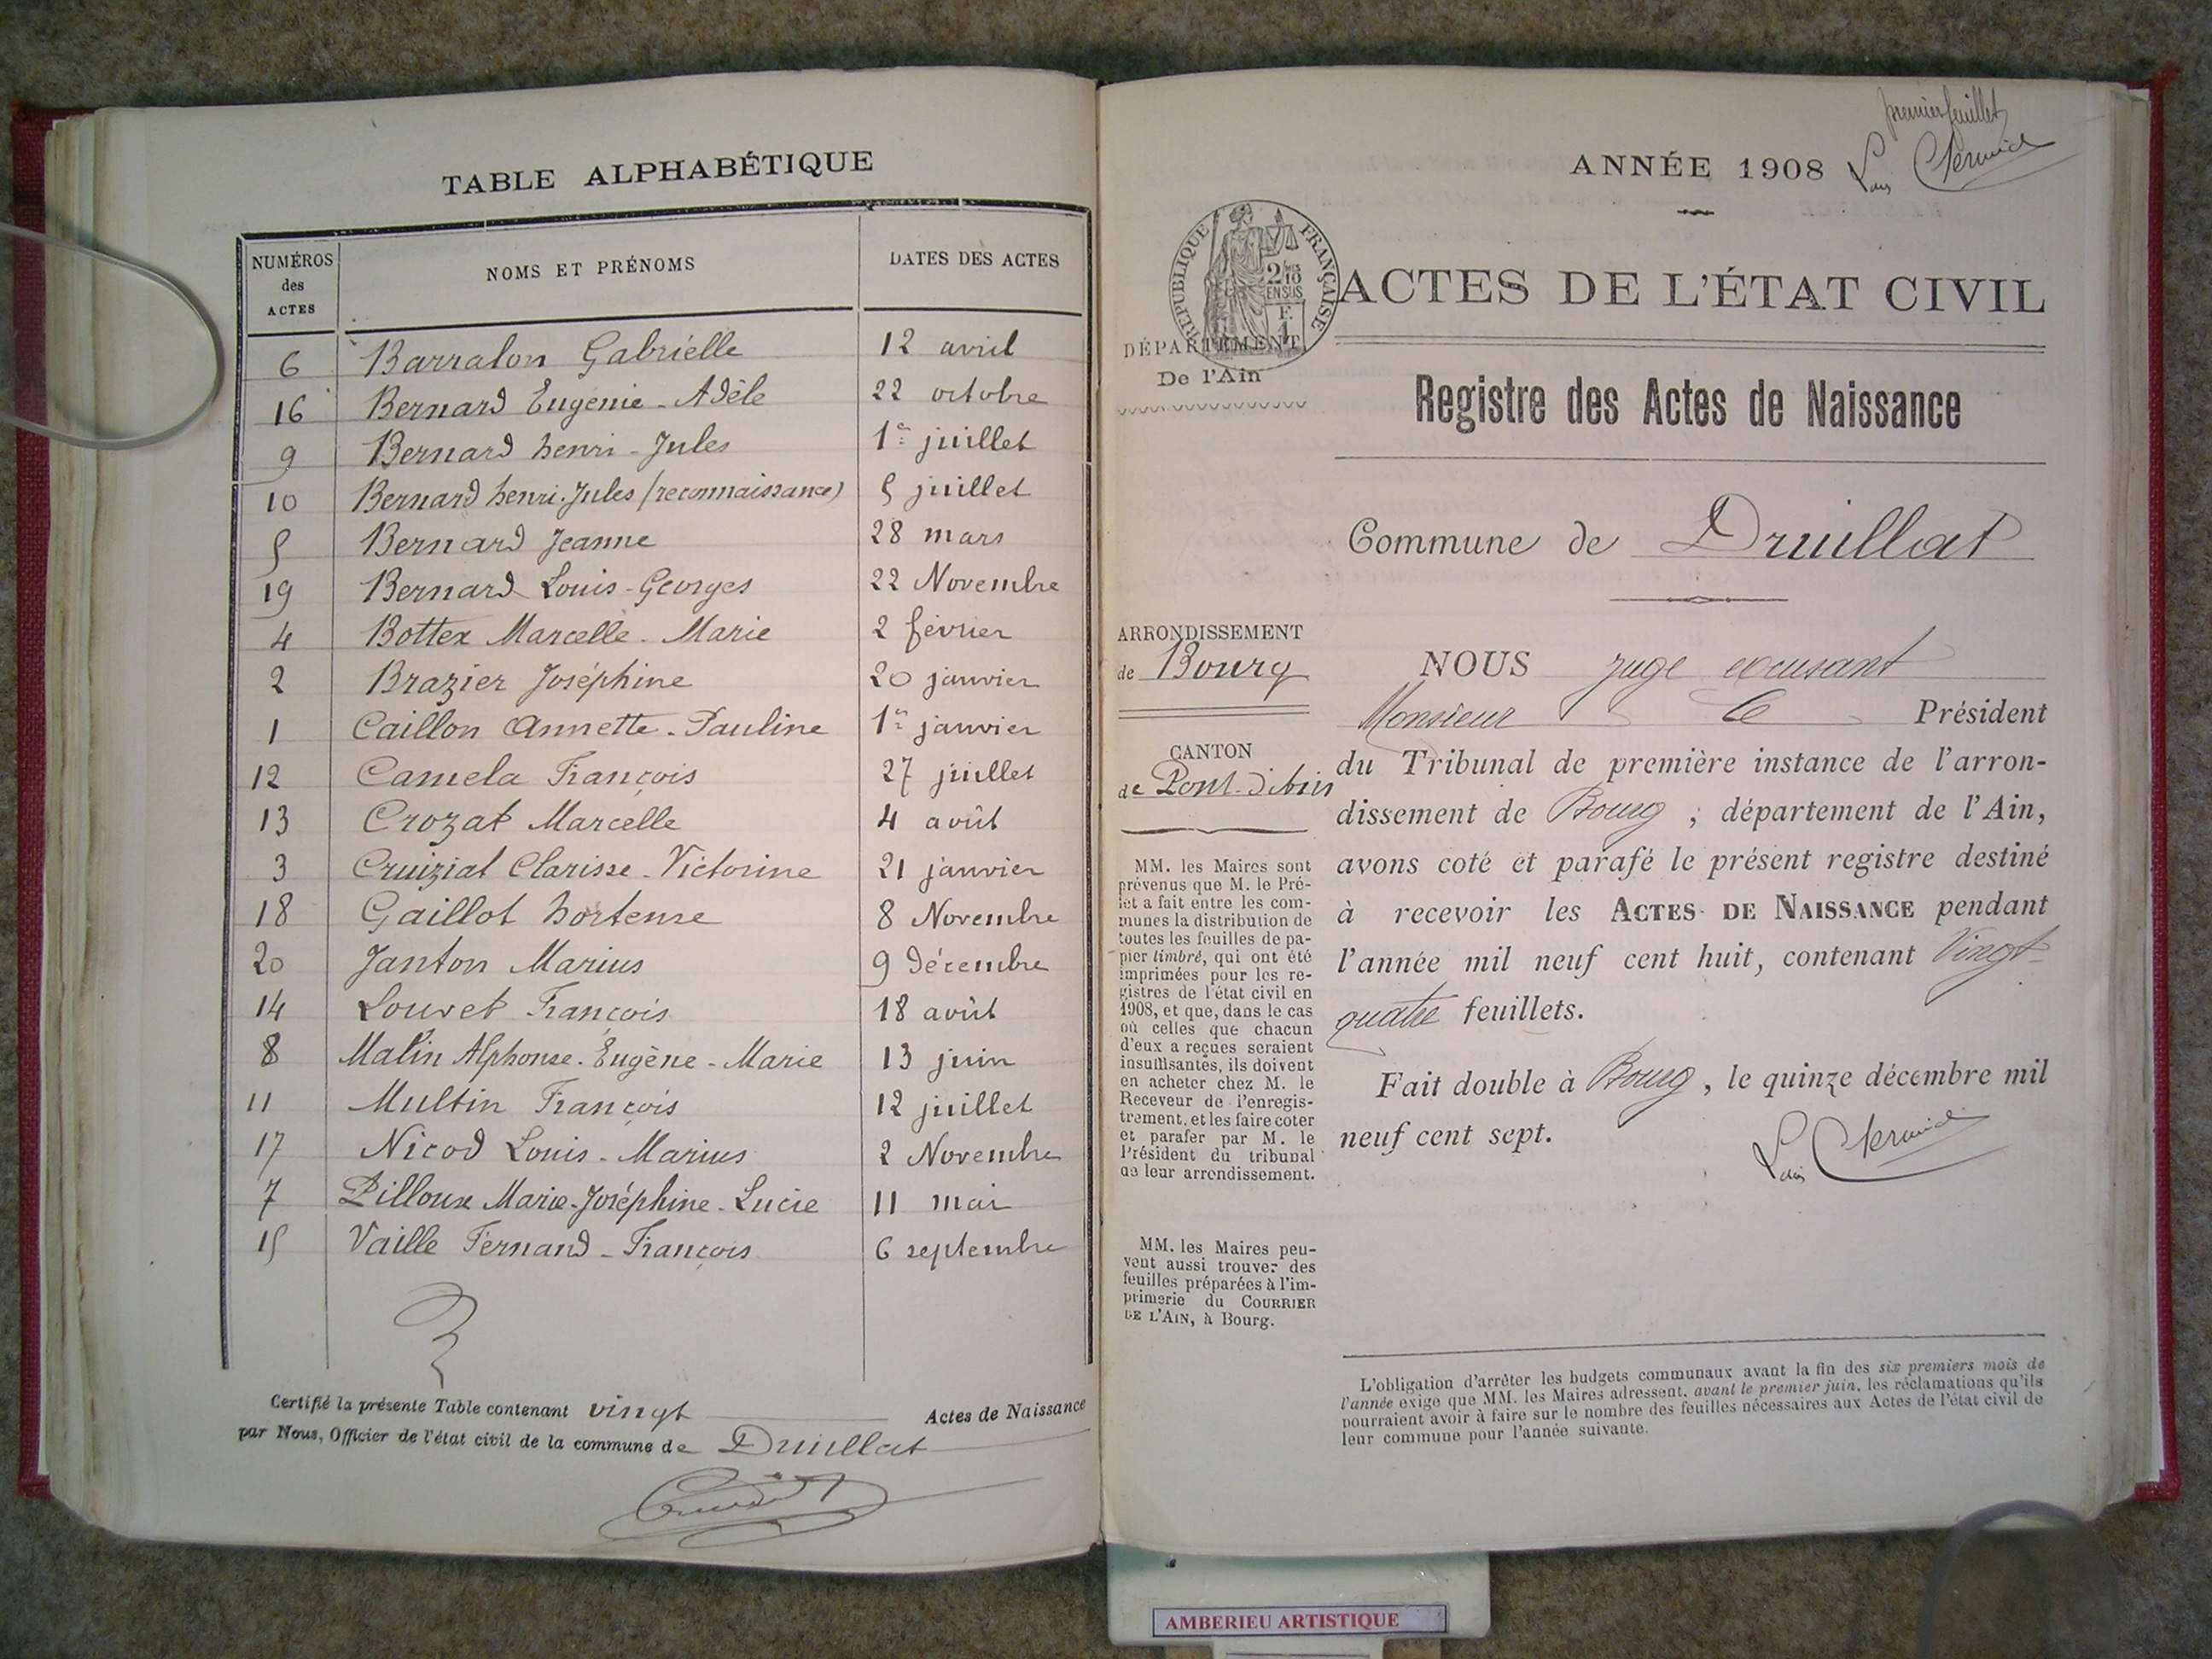 TABLE ALPHABÉTIQUE
NUMÉROS des ACTES NOMS ET PRÉNOMS DATES DES ACTES
6 Barralon Gabrielle 12 avril
16 Bernard Eugénie-Adèle 22 octobre
9 Bernard henri-Jules 1er juillet
10 Bernard henri-Jules (reconnaissance) 5 juillet
5 Bernard Jeanne 28 mars
19 Bernard Louis-Georges 22 Novembre
4 Bottex Marcelle-Marie 2 février
2 Brazier Joséphine 20 janvier
1 Caillon Annette-Pauline 1er janvier
12 Camela François 27 juillet
13 Crozat Marcelle 4 août
3 Cruiziat Clarisse-Victorine 21 janvier
18 Gaillot hortense 8 Novembre
20 Janton Marius 9 décembre
14 Louvet François 18 août
8 Matin Alphonse-Eugène-Marie 13 juin
11 Multin François 12 juillet
17 Nicod Louis-Marius 2 Novembre
7 Pilloux Marie-Joséphine-Lucie 11 mai
15 Vaille Fernand-François 6 septembre
Certifié la présente Table contenant vingt Actes de Naissance
par Nous, Officier de l'état civil de la commune de Druillat
premier feuillet
ANNÉE 1908
RÉPUBLIQUE FRANÇAISE
2/10 EN SUS
F. 1
ACTES DE L'ÉTAT CIVIL
DÉPARTEMENT
De l'Ain
Registre des Actes de Naissance
Commune de Druillat
ARRONDISSEMENT
de Bourg
CANTON
de Pont-d'Ain
MM. les Maires sont
prévenus que M. le Pré-
fet a fait entre les com-
munes la distribution de
toutes les feuilles de pa-
pier timbré, qui ont été
imprimées pour les re-
gistres de l'état civil en
1908, et que, dans le cas
où celles que chacun
d'eux a reçues seraient
insuffisantes, ils doivent
en acheter chez M. le
Receveur de l'enregis-
trement, et les faire coter
et parafer par M. le
Président du tribunal
de leur arrondissement.
MM. les Maires peu-
vent aussi trouver des
feuilles préparées à l'im-
primerie du COURRIER
DE L'AIN, à Bourg.
NOUS juge excusant
Monsieur le Président
du Tribunal de première instance de l'arron-
dissement de Bourg ; département de l'Ain,
avons coté et parafé le présent registre destiné
à recevoir les ACTES DE NAISSANCE pendant
l'année mil neuf cent huit, contenant Vingt-
quatre feuillets.
Fait double à Bourg, le quinze décembre mil
neuf cent sept.
L'obligation d'arrêter les budgets communaux avant la fin des six premiers mois de
l'année exige que MM. les Maires adressent, avant le premier juin, les réclamations qu'ils
pourraient avoir à faire sur le nombre des feuilles nécessaires aux Actes de l'état civil de
leur commune pour l'année suivante.
AMBERIEU ARTISTIQUE